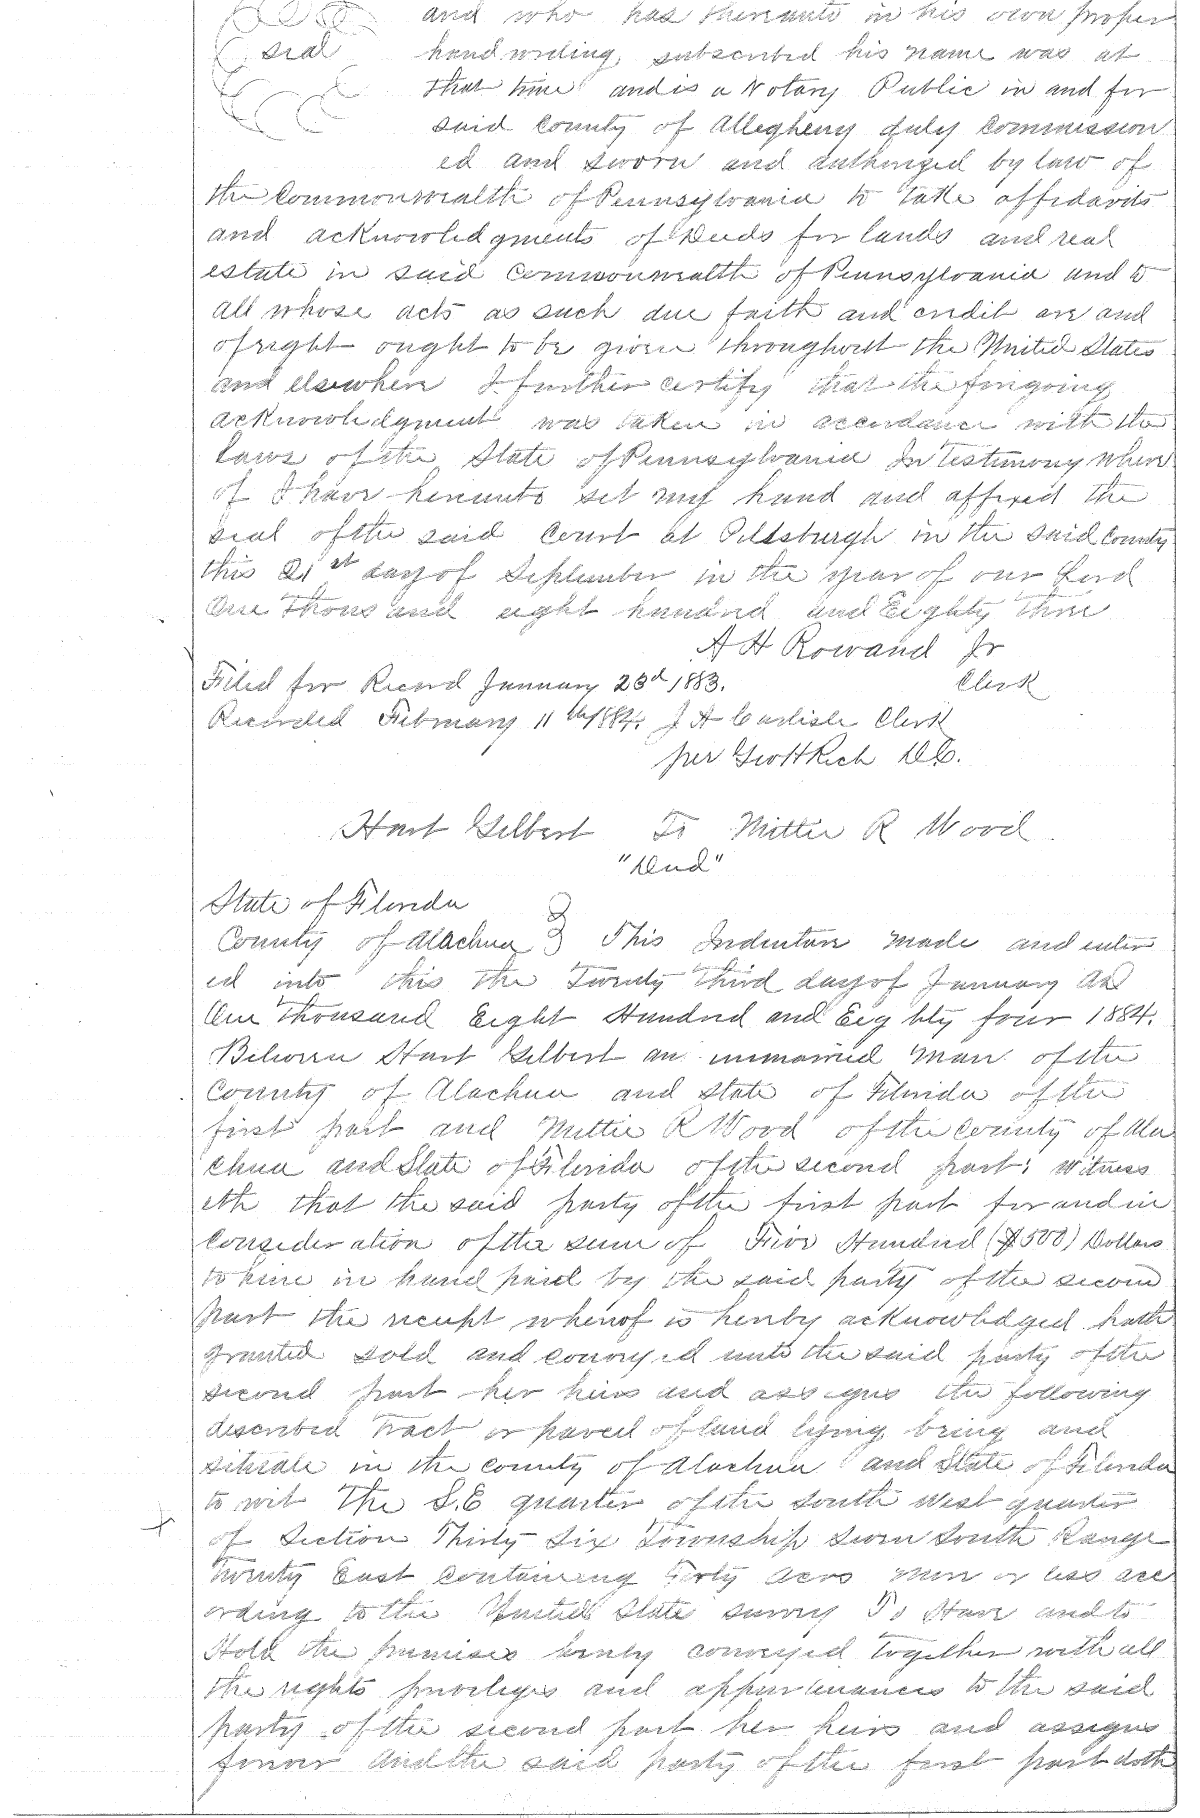 and who has thereunto in his own proper
seal handwriting, subscribed his name was at
that time and is a Notary Public in and for
said County of Allegheny duly Commission
ed and sworn and authorized by law of
the Commonwealth of Pennsylvania to take affidavits
and acknowledgments of Deeds for lands and real
estate in said Commonwealth of Pennsylvania and to
all whose acts as such due faith and credit are and
of right ought to be given throughout the United States
and elsewhere I further certify that the foregoing
acknowledgment was taken in accordance with the
laws of the State of Pennsylvania In Testimony where
of I have hereunto set my hand and affixed the
seal of the said Court at Pittsburgh in the said County
this 21st day of September in the year of our Lord
One Thousand eight hundred and Eighty three
A H Rowand Jr
Clerk
Filed for Record January 23d, 1883.
Recorded February 11th, 1884. J A Carlisle Clerk
per Geo H Rich D.C.
Hart Gilbert To Mittie R Wood
"Deed"
State of Florida
County of Alachua } This Indenture made and enter
ed into this the Twenty Third day of January AD
One Thousand Eight Hundred and Eighty four 1884.
Between Hart Gilbert an unmarried man of the
County of Alachua and State of Florida of the
first part and Mittie R Wood of the County of Ala
chua and State of Florida of the second part: Witness
eth that the said party of the first part for and in
Consideration of the sum of Five Hundred ($500) Dollars
to him in hand paid by the said party of the second
part the receipt whereof is hereby acknowledged hath
granted sold and conveyed unto the said party of the
second part her heirs and assigns the following
described Tract or parcel of land lying being and
situate in the county of Alachua and State of Florida
to wit The S.E quarter of the south west quarter
of Section Thirty Six Township Seven South Range
Twenty East Containing Forty acres more or less acc
ording to the United State survey To Have and to
Hold the premises hereby conveyed together with all
the rights privileges and appurtenances to the said
party of the second part her heirs and assigns
forever And the said party of the first part doth